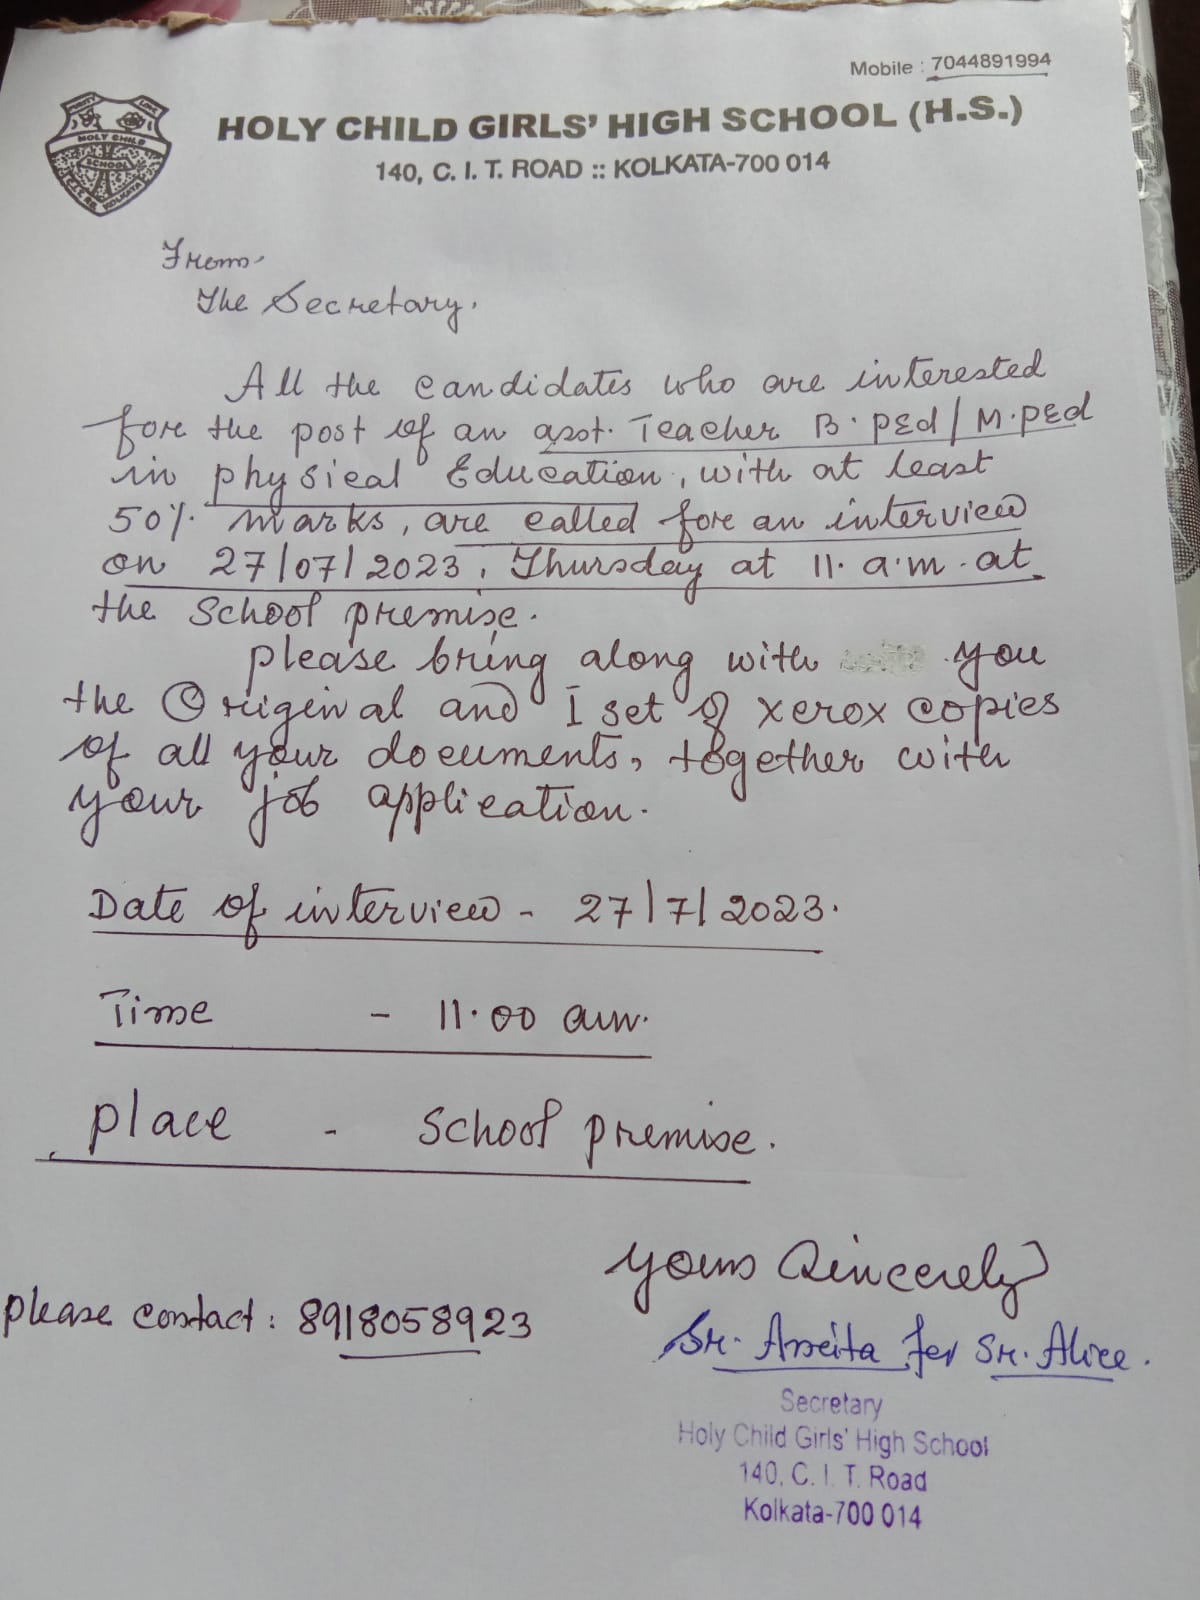 Mobile : 7044891994
HOLY CHILD GIRLS' HIGH SCHOOL (H.S.)
140, C. I. T. ROAD :: KOLKATA-700 014
PURITY LOVE
HOLY CHILD
SCHOOL
C.I.T. RD. KOLKATA
From
The Secretary.
All the candidates who are interested
for the post of an asst. Teacher B.PEd/M.PEd
in physical Education, with at least
50% marks, are called for an interview
on 27/07/2023, Thursday at 11. a.m. at
the School premise.
please bring along with you
the Original and I set of xerox copies
of all your documents, together with
your job application.
Date of interview - 27/7/2023.
Time - 11.00 am.
place - School premise.
yours Sincerely
please contact : 8918058923
Sr. for Sr. Alice.
Secretary
Holy Child Girls' High School
140, C. I. T. Road
Kolkata-700 014